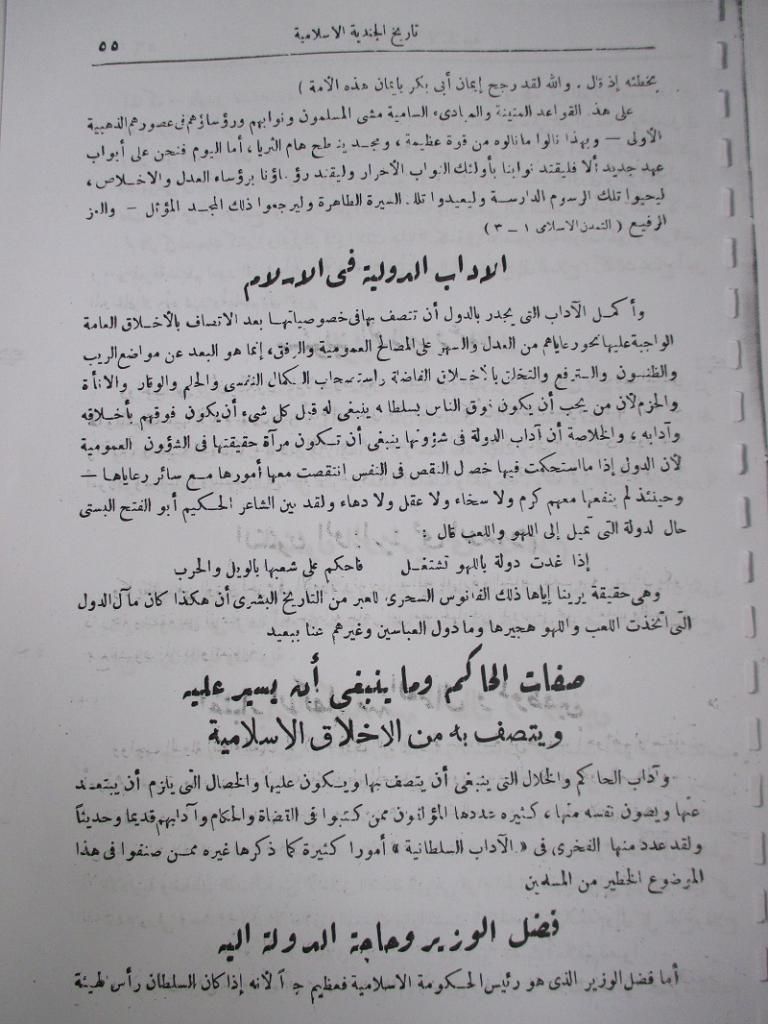 تاريخ الجندية الاسلامية
٥٥
يخطئه إذ قال . والله لقد رجح إيمان أبي بكر بايمان هذه الأمة )
على هذه القواعد المتينة والمبادىء السامية مشى المسلمون ونوابهم ورؤساؤهم فى عصورهم الذهبية
الأولى — وبهذا نالوا ما نالوه من قوة عظيمة ، ومجد ينطح هام الثريا ، أما اليوم فنحن على أبواب
عهد جديد ألا فليقتد نوابنا بأولئك النواب الأحرار وليقتد رؤساؤنا برؤساء العدل والاخلاص ،
ليحيوا تلك الرسوم الدارسة وليعيدوا تلك السيرة الطاهرة وليرجعوا ذلك المجد المؤثل — والعز
الرفيع ( التمدن الاسلامى ١ – ٣ )
الاداب الدولية فى الاسلام
وأكمل الآداب التى يجدر بالدول أن تتصف بها فى خصوصياتها بعد الاتصاف بالأخلاق العامة
الواجبة عليها نحو رعاياهم من العدل والسهر على المصالح العمومية والرفق ، إنما هو البعد عن مواضع الريب
والظنون والترفع والتخلق بالأخلاق الفاضلة واستصحاب الكمال النفسى والحلم والوقار والاناة
والحزم لأن من يجب أن يكون فوق الناس بسلطانه ينبغى له قبل كل شىء أن يكون فوقهم بأخلاقه
وآدابه ، والخلاصة أن آداب الدولة فى شؤونها ينبغى أن تكون مرآة حقيقتها فى الشؤون العمومية
لأن الدول إذا ما استحكمت فيها خصال النقص فى النفس انتقصت معها أمورها مع سائر رعاياها —
وحينئذ لم ينفعها معهم كرم ولا سخاء ولا عقل ولا دهاء ولقد بين الشاعر الحكيم أبو الفتح البستى
حال لدولة التى تميل إلى اللهو واللعب قال :
إذا غدت دولة باللهو تشتغل فاحكم على شعبها بالويل والحرب
وهى حقيقة يرينا إياها ذلك الفانوس السحرى للعبر من التاريخ البشرى أن هكذا كان مآل الدول
التى اتخذت اللعب واللهو هجيرها وما دول العباسين وغيرهم عنا ببعيد
صفات الحاكم وما ينبغى أن يسير عليه
ويتصف به من الاخلاق الاسلامية
وآداب الحاكم والخلال التى ينبغى أن يتصف بها ويكون عليها والخصال التى يلزم أن يبتعد
عنها ويصون نفسه منها ، كثيره عددها المؤلفون ممن كتبوا فى القضاة والحكام وآدابهم قديما وحديثاً
ولقد عدد منها الفخرى فى « الآداب السلطانية » أمورا كثيرة كما ذكرها غيره ممن صنفوا فى هذا
الموضوع الخطير من المسلمين
فضل الوزير وحاجة الدولة اليه
أما فضل الوزير الذى هو رئيس الحكومة الاسلامية فعظيم جداً لأنه إذا كان السلطان رأس لهيئة